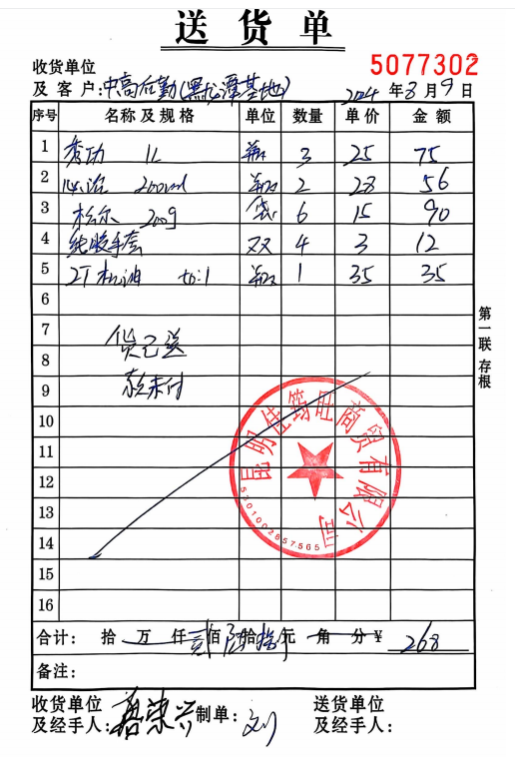 送货单
收货单位
5077302
及客户:中高后勤(黑龙潭基地) 2024年3月9日
序号 名称及规格 单位 数量 单价 金额
1 秀功 1L 瓶 3 25 75
2 200ml 瓶 2 28 56
3 松尔 200g 袋 6 15 90
4 纯胶手套 双 4 3 12
5 2T机油 to:1 瓶 1 35 35
6
7 货已送
8
9 款未付
10
11
12
13
14
15
16
第一联 存根
昆明佳筠旺商贸有限公司
5301002657565
合计: 拾 万 仟 贰佰陆拾捌元 角 分 ¥ 268
备注:
收货单位 制单:刘 送货单位
及经手人: 荣兴 及经手人: